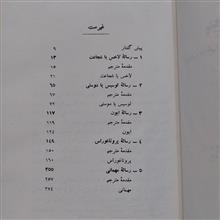 فهرست
پیش گفتار ۹
۱ – رسالهٔ لاخس یا شجاعت ۱۳
مقدمهٔ مترجم ۱۵
لاخس یا شجاعت ۲۱
۲ – رسالهٔ لوسیس یا دوستی ۶۵
مقدمهٔ مترجم ۶۷
لوسیس یا دوستی
۳ – رسالهٔ ایون ۱۱۷
مقدمهٔ مترجم ۱۱۹
ایون
۴ – رسالهٔ پروتاغوراس ۱۴۹
مقدمهٔ مترجم
پروتاغوراس
۵ – رسالهٔ مهمانی ۲۵۵
مقدمهٔ مترجم ۲۵۷
مهمانی ۲۷۴